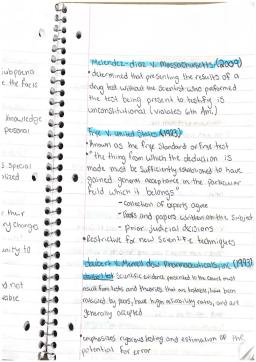 subpoena
e the facts
knowledge
personal
s special
ized
their
ry Changes
unity to
d not
sable
Melendez-dias V. Massachusetts (2009)
• determined that presenting the results of a
drug test without the scientist who performed
the test being present to testify is
unconstitutional (violates 6th Am.)
Frye V. United States (1923)
• Known as the frye Standard or frye test
• "the thing from which the deduction is
made must be sufficiently established to have
gained general acceptance in the particular
field which it belongs"
- collection of experts agree
- Books and papers written on the subject
- prior judicial decisions
• Restrictive for new scientific techniques
daubert V. Merrell dow Pharmaceuticals, inc (1993)
scientific evidence presented to the court must
result from tests and theories that are testable, have been
reviewed by peers, have high reliability rates, and are
generally accepted
• emphasizes rigorous testing and estimation of the
potential for error